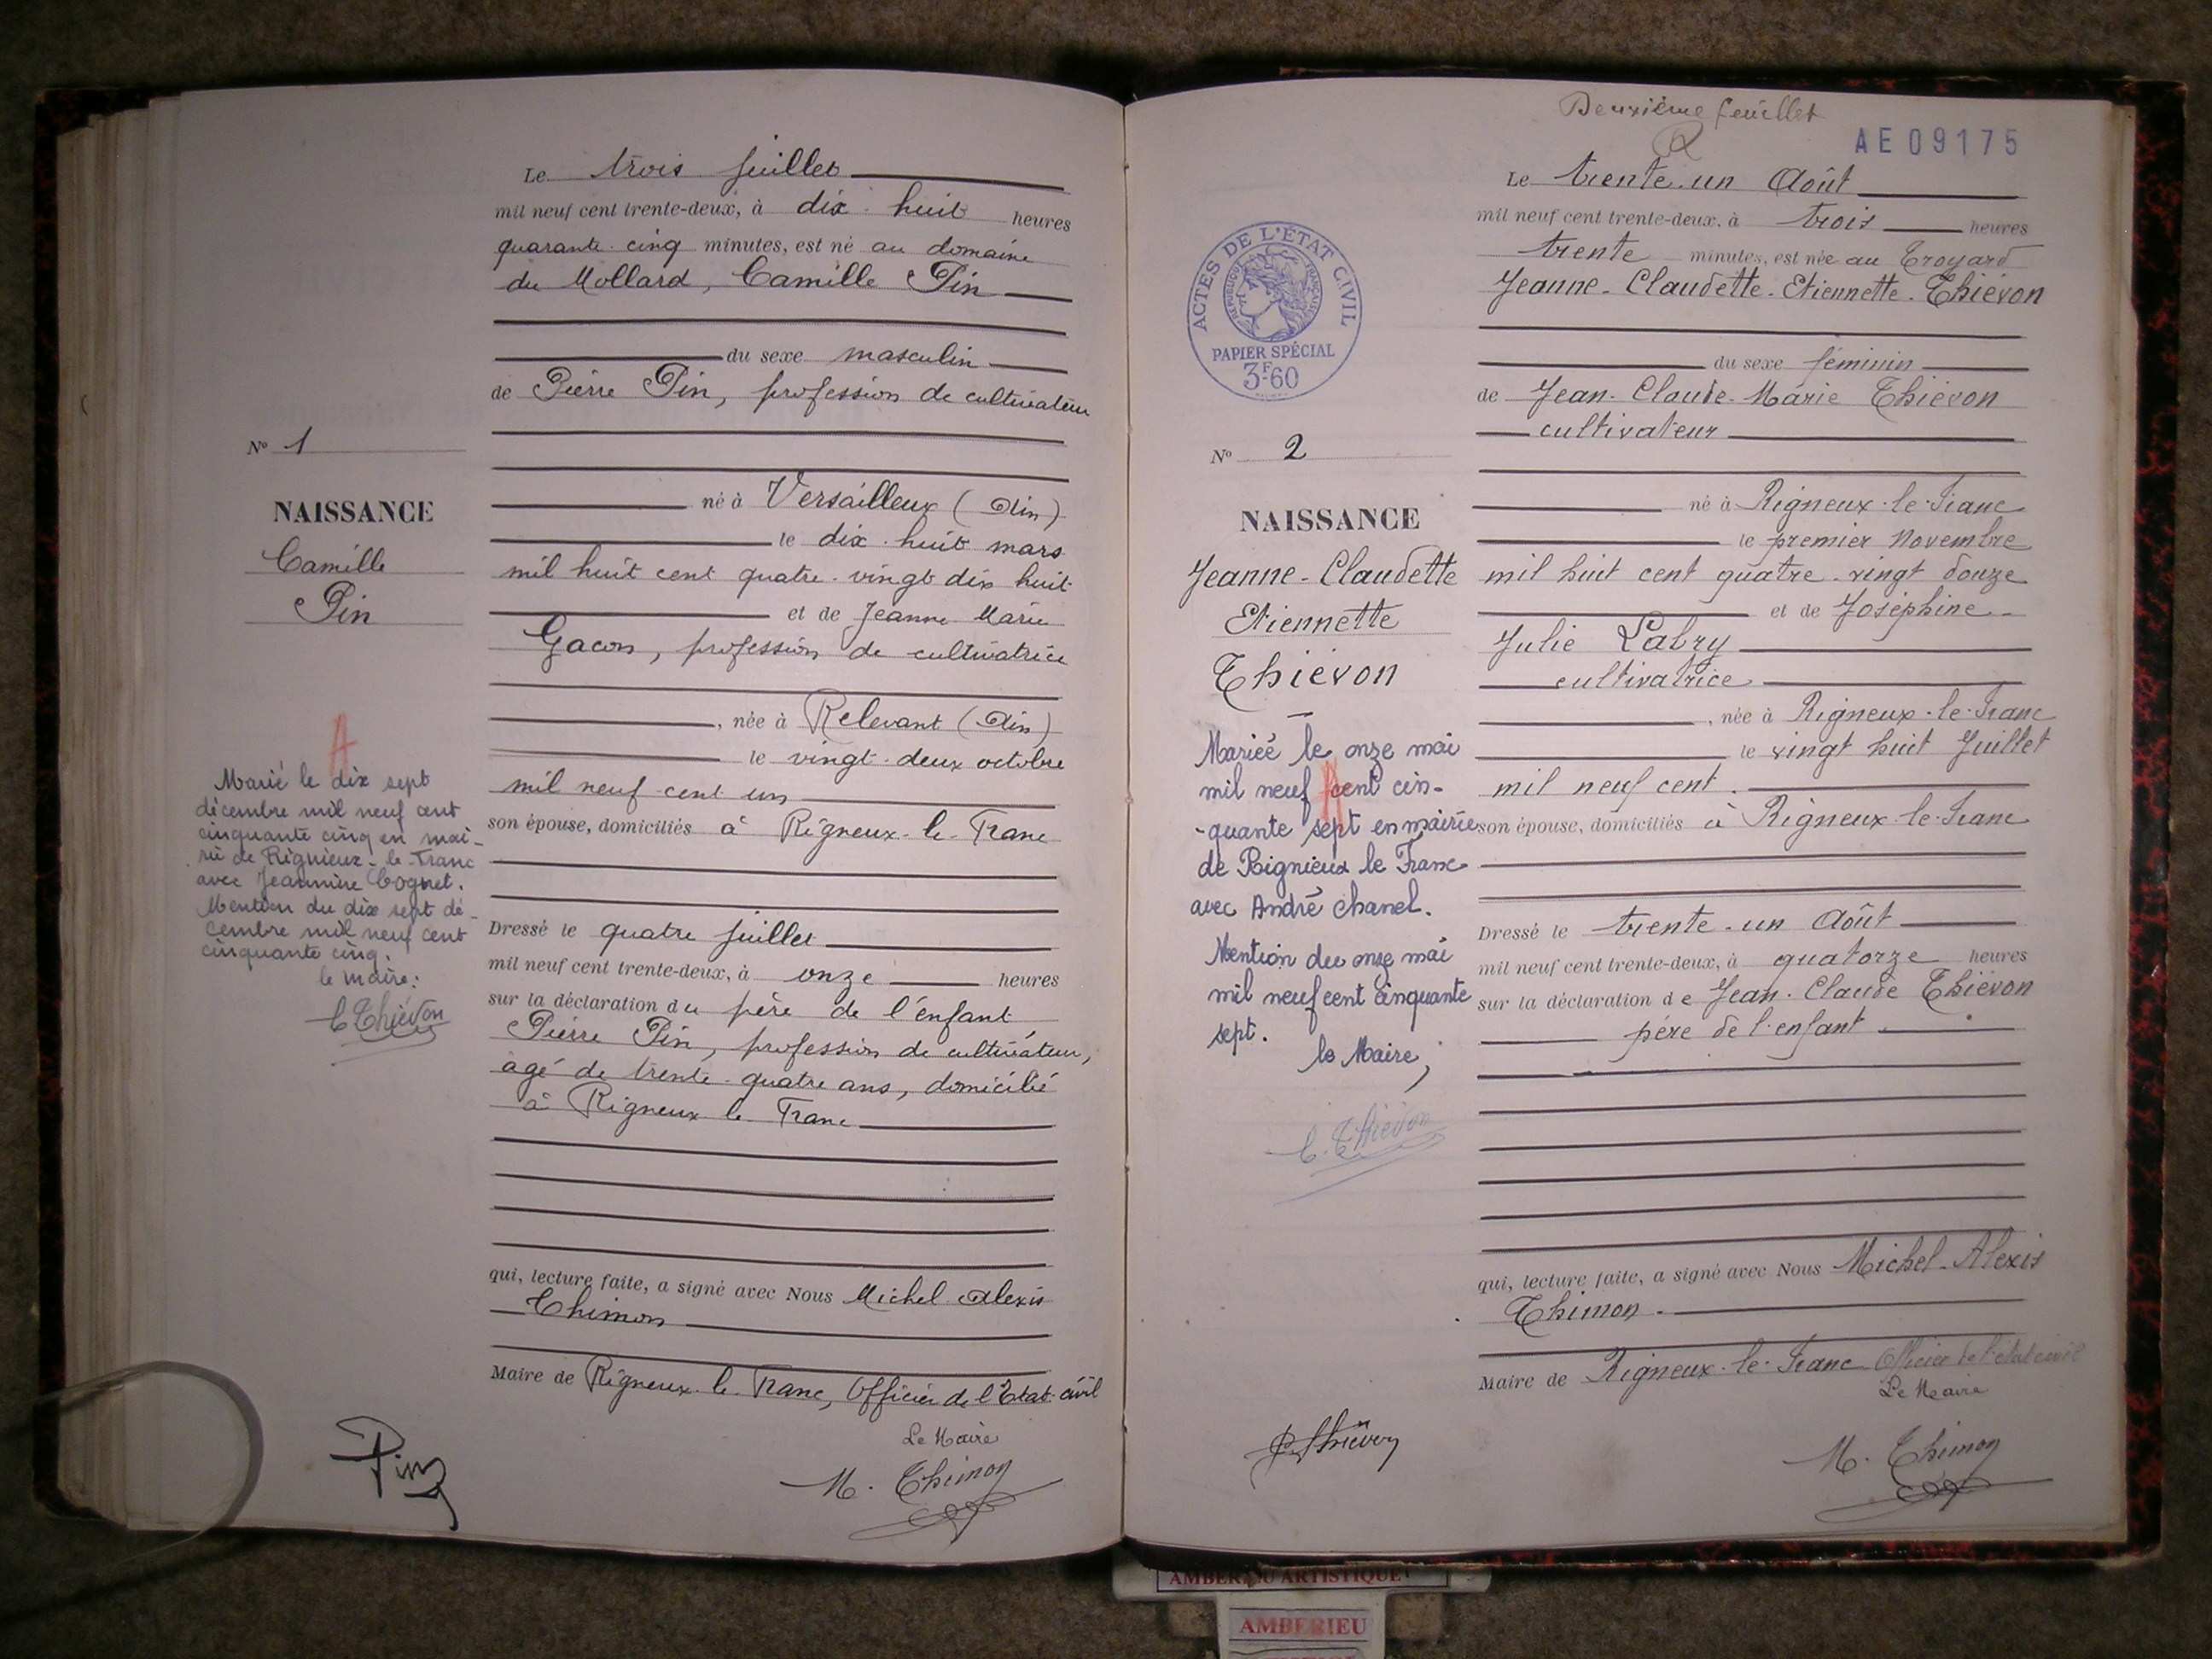 Le trois juillet
mil neuf cent trente-deux, à dix-huit heures
quarante-cinq minutes, est né au domaine
du Mollard, Camille Pin
du sexe masculin
de Pierre Pin, profession de cultivateur
né à Versailleux (Ain)
le dix-huit mars
mil huit cent quatre-vingt dix huit
et de Jeanne Marie
Gacon, profession de cultivatrice
, née à Relevant (Ain)
le vingt-deux octobre
mil neuf cent un
son épouse, domiciliés à Rigneux-le-Franc
Dressé le quatre juillet
mil neuf cent trente-deux, à onze heures
sur la déclaration du père de l'enfant,
Pierre Pin, profession de cultivateur,
agé de trente-quatre ans, domicilié
à Rigneux le Franc
qui, lecture faite, a signé avec Nous Michel Alexis
Thimon
Maire de Rigneux-le-Franc, Officier de l'Etat-civil
Le Maire
M. Thimon
Pin
N° 1
NAISSANCE
Camille
Pin
A
Marié le dix sept
décembre mil neuf cent
cinquante cinq en mai-
rie de Rignieux-le-Franc
avec Jeannine Cognet.
Mention du dix sept dé-
cembre mil neuf cent
cinquante cinq.
le maire:
C Thiévon
Deuxième feuillet
AE 09175
Le trente-un Août
mil neuf cent trente-deux, à trois heures
trente minutes, est née au Troyard
Jeanne-Claudette-Etiennette-Thiévon
du sexe féminin
de Jean-Claude-Marie Thiévon
cultivateur
né à Rigneux-le-Franc
le premier Novembre
mil huit cent quatre-vingt douze
et de Joséphine-
Julie Labry
cultivatrice
, née à Rigneux-le-Franc
le vingt huit Juillet
mil neuf cent.
son épouse, domiciliés à Rigneux-le-Franc
Dressé le trente-un Août
mil neuf cent trente-deux, à quatorze heures
sur la déclaration de Jean-Claude Thiévon
père de l'enfant.
qui, lecture faite, a signé avec Nous Michel-Alexis
Thimon.
Maire de Rigneux-le-Franc Officier de l'état civil
Le Maire
M. Thimon
ACTES DE L'ÉTAT CIVIL
RÉPUBLIQUE FRANÇAISE
PAPIER SPÉCIAL
3F60
N° 2
NAISSANCE
Jeanne-Claudette
Etiennette
Thiévon
A
Mariée le onze mai
mil neuf cent cin-
-quante sept en mairie
de Rignieux le Franc
avec André Chanel.
Mention du onze mai
mil neuf cent cinquante
sept.
le Maire,
C. Thiévon
Thiévon
AMBERIEU ARTISTIQUE
AMBERIEU